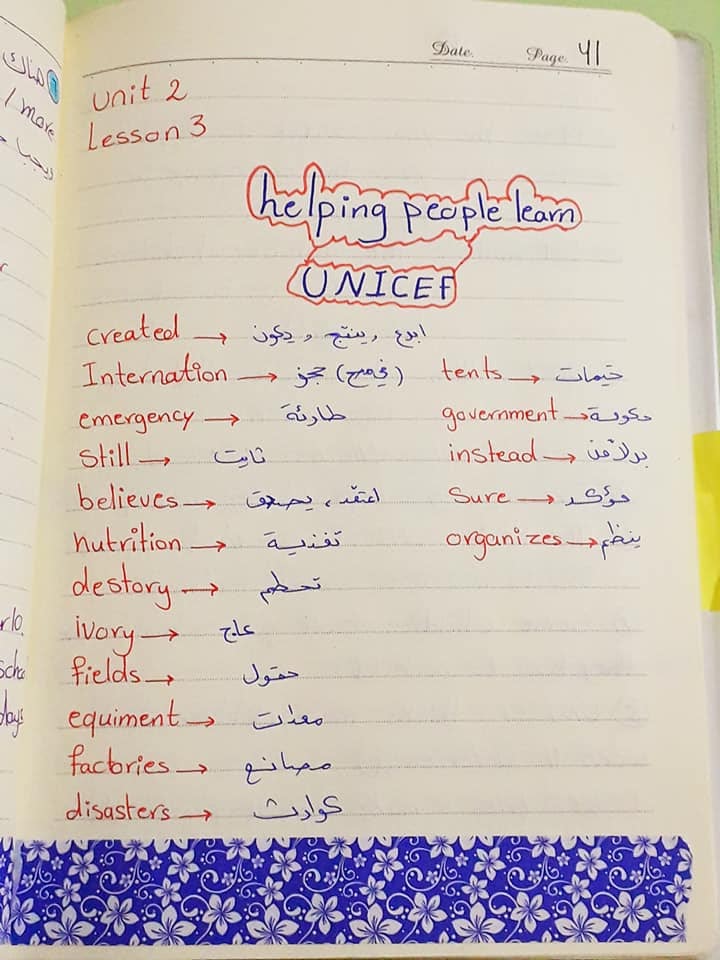 Date. Page. 41
Unit 2
Lesson 3
helping people learn
UNICEF
Created → ابدع, ينتج, ويكون
Internation →
emergency → طارئة
still → ثابت
believes → اعتقد، يصدق
nutrition → تغذية
destory → تحطم
ivory → عاج
fields → حقول
equiment → معدات
factories → مصانع
disasters → كوارث
tents → خيمات
government → حكومة
instead → بدلاً من
Sure → مؤكد
organizes → ينظم
هناك
/ more